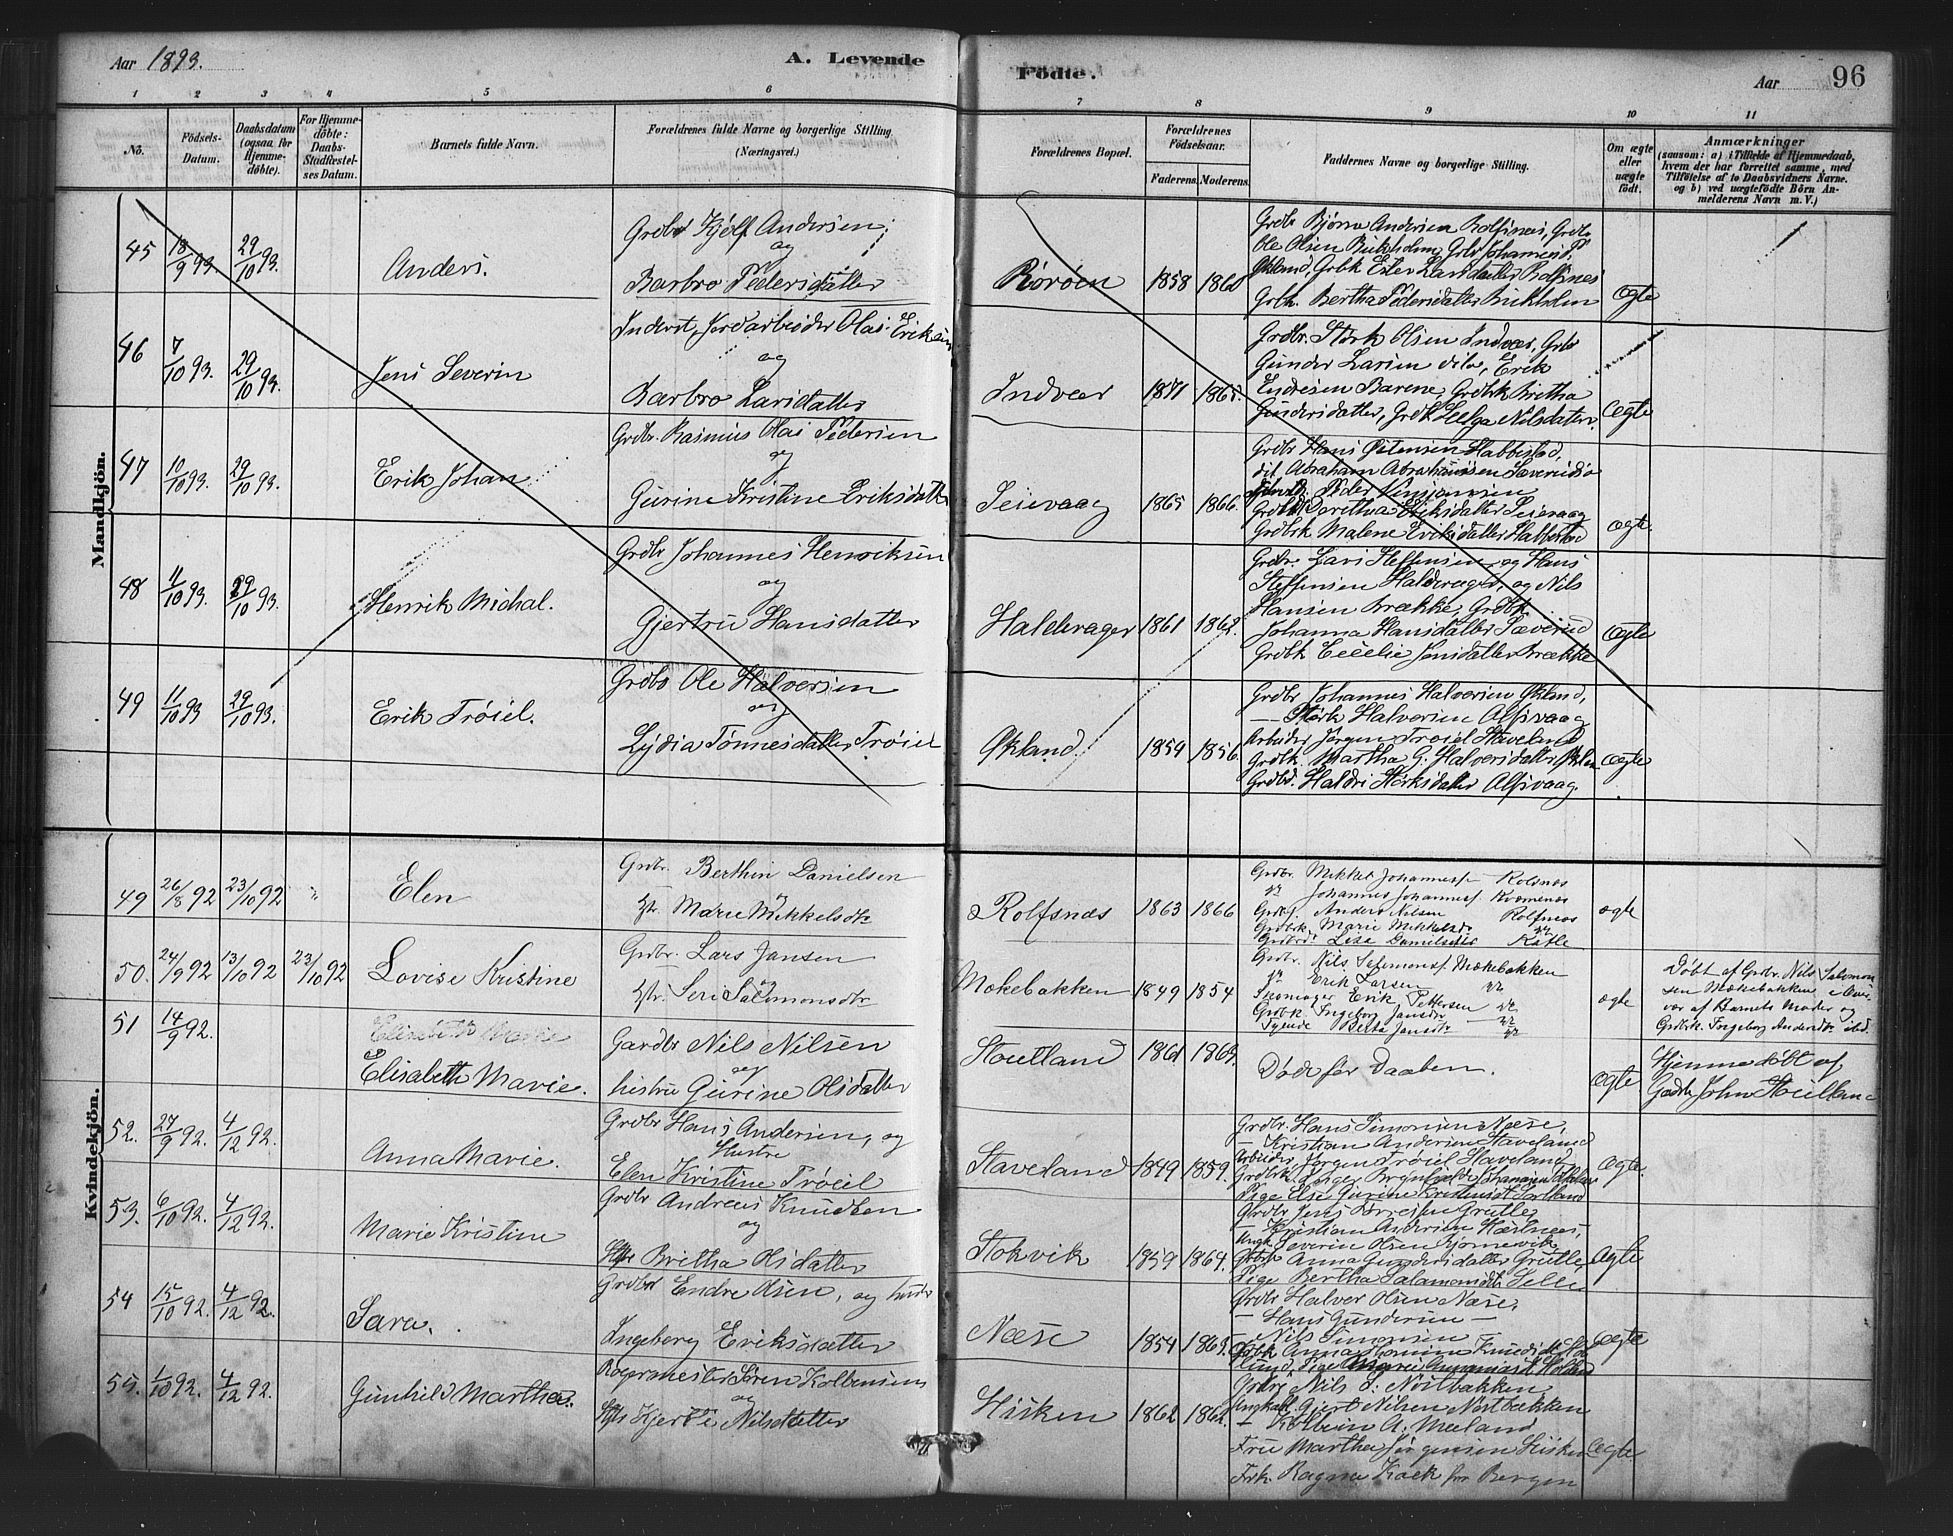 Aar 1893.
A. Levende
Födte.
Aar
96
1 2 3 4 5 6 7 8 9 10 11
Nö.
Födsels-Datum.
Daabsdatum (ogsaa for Hjemme-döbte).
For Hjemme-döbte: Daabs-Stadfæstel-ses Datum.
Barnets fulde Navn.
Forældrenes fulde Navne og borgerlige Stilling.
(Næringsvei.)
Forældrenes Bopæl.
Forældrenes Födselsaar.
Faderens. Moderens.
Faddernes Navne og borgerlige Stilling.
Om ægte eller uægte födt.
Anmærkninger
(saasom: a) i Tilfælde af Hjemmedaab,
hvem der har forrettet samme, med
Tilföielse af to Daabsvidners Navne.
og b) ved uægtefödte Börn An-
melderens Navn m. V.)
Mandkjön.
45 18/9 93. 29/10 93. Anders.
Grdbr Kjølf Andersen
og
Barbro Pedersdatter
Rørøen 1858 1860
Grdbr Bjørn Andersen Rolfsnes, Grdbr
Ole Olsen Birkholm, Grbr Johannes P.
Økland, Grbk Ester Larsdatter Rolfsnes
Grbk. Bertha Pedersdatter Birkholm
Ægte
46 7/10 93. 29/10 93. Jens Severin
Inderst, Jordarbeider Olai Eriksen
og
Barbro Larsdatter
Indvær 1871 1865.
Grdbr. Størk Olsen Indvær, Grbr
Gunder Larsen dito, Erik
Endresen Barene, Grdbk Britha
Gundersdatter, Grdk Helga Nilsdatter.
Ægte
47 10/10 93. 29/10 93. Erik Johan
Grdbr. Rasmus Olai Pedersen
og
Gurine Kristine Eriksdatter
Seievaag 1865 1866.
Grdbr Hans Østensen Habbestad,
dit. Abraham Abrahamsen Sæverudsø
Peder
Grdbk Dorithea Eriksdatter Seievaag
Grdbrk Malene Eriksdatter Habbestad
ægte.
48 11/10 93. 29/10 93. Henrik Michal.
Grdbr Johannes Henriksen
og
Gjertru Hansdatter
Haldorager 1861 1862.
Grdbr. Lars Steffensen og Hans
Steffensen Haldorager, og Nils
Hansen Brække, Grdbk.
Johanna Hansdatter Sæverud
Grdbk Cecelie Jensdatter Brække
Ægte
49 11/10 93 29/10 93. Erik Trøiel.
Grdbr Ole Halvorsen
og
Lydia Tønnesdatter Trøiel
Økland 1854 1856.
Grdbr Johannes Halvorsen Økland,
— Størk Halvorsen Alfsvaag
Arbeider Jørgen Trøiel Staveland
Grdbk. Martha G. Halvorsdatter Øklan
Grdbr. Haldri Størksdatter Alfsvaag.
Ægte
Kvindekjön.
49 26/8 92 23/10 92 " Elen
Grdbr. Berthin Danielsen
og
Htr. Marie Mikkelsdtr
Rolfsnæs 1863 1866
Grdbr. Mikkel Johannesf. Rolfsnæs
Johannes Johannesf. Kvarnenes
Anders Nilsen Rolfsnæs
Grdbrk. Marie Mikkelsdr
Lisa Danielsdtr Katle
ægte
50. 24/9 92 13/10 92 23/10 92 Lovise Kristine
Grdbr. Lars Jansen
og
Htr. Seri Salomonsdtr
Møkebakken 1849 1854
Grdbr. Nils Salomonsf. Møkebakken
Erik Larsen
Skomager Erik Pettersen
Grdbk. Ingeborg Jansdtr
Tyende Berta Jansdtr
ægte
Döbt af Grdbr. Nils Salomon
sen Møkebakken i Over
vær af Barnets Moder og
Grdbk. Ingeborg Andersdtr ibd.
51 14/9 92.
Elisabeth Marie
Elisabeth Marie.
Gardbr Nils Nilsen
og
hustru Gurine Olsdatter
Stoutland 1861 1869.
Døde før Daaben.
Ægte
Hjemmedöbt af
Gardbr John Stoutland
52. 27/9 92. 4/12 92. Anna Marie.
Grdbr Hans Andersen, og
Hustru
Elen Kristine Trøeil
Staveland 1849 1859.
Grdbr. Hans Simonsen Næse,
— Kristian Andersen Staveland
Arbeider Jørgen Trøiel Staveland
Pige Else Gurine
Ægte.
53. 6/10 92. 4/12 92. Marie Kristine
Grdbr Andreas Knudsen
og
Britha Olsdatter
Stokvik 1859 1864.
Grdbr Jens
— Kristian Andersen
Ungk Severin Olsen Bjørnevik
Grdbk Anna Gundersdatter Grutle
Pige Bertha Salamonsdt Selle
Ægte
54 15/10 92. 4/12 92. Sara.
Grdbr Endre Olsen, og hustr
Ingeborg Eriksdatter
Næse 1854 1869.
Grdbr Halvor Olsen Næse,
— Hans Gundersen —
— Nils Simonsen
Ægte
55. 1/10 92. 4/12 92. Gunhild Martha.
Søren Kolbensens
og
Hjerte Nilsdatter
Hisken 1862 1862.
Grdbr Nils L. Nøstbakken
Ungkall Gjert Nilsen Nøstbakken
— Kolbein A. Meeland
Fru Martha Jørgensen Hisken
Frk. Ragna Kock fra Bergen
Ægte